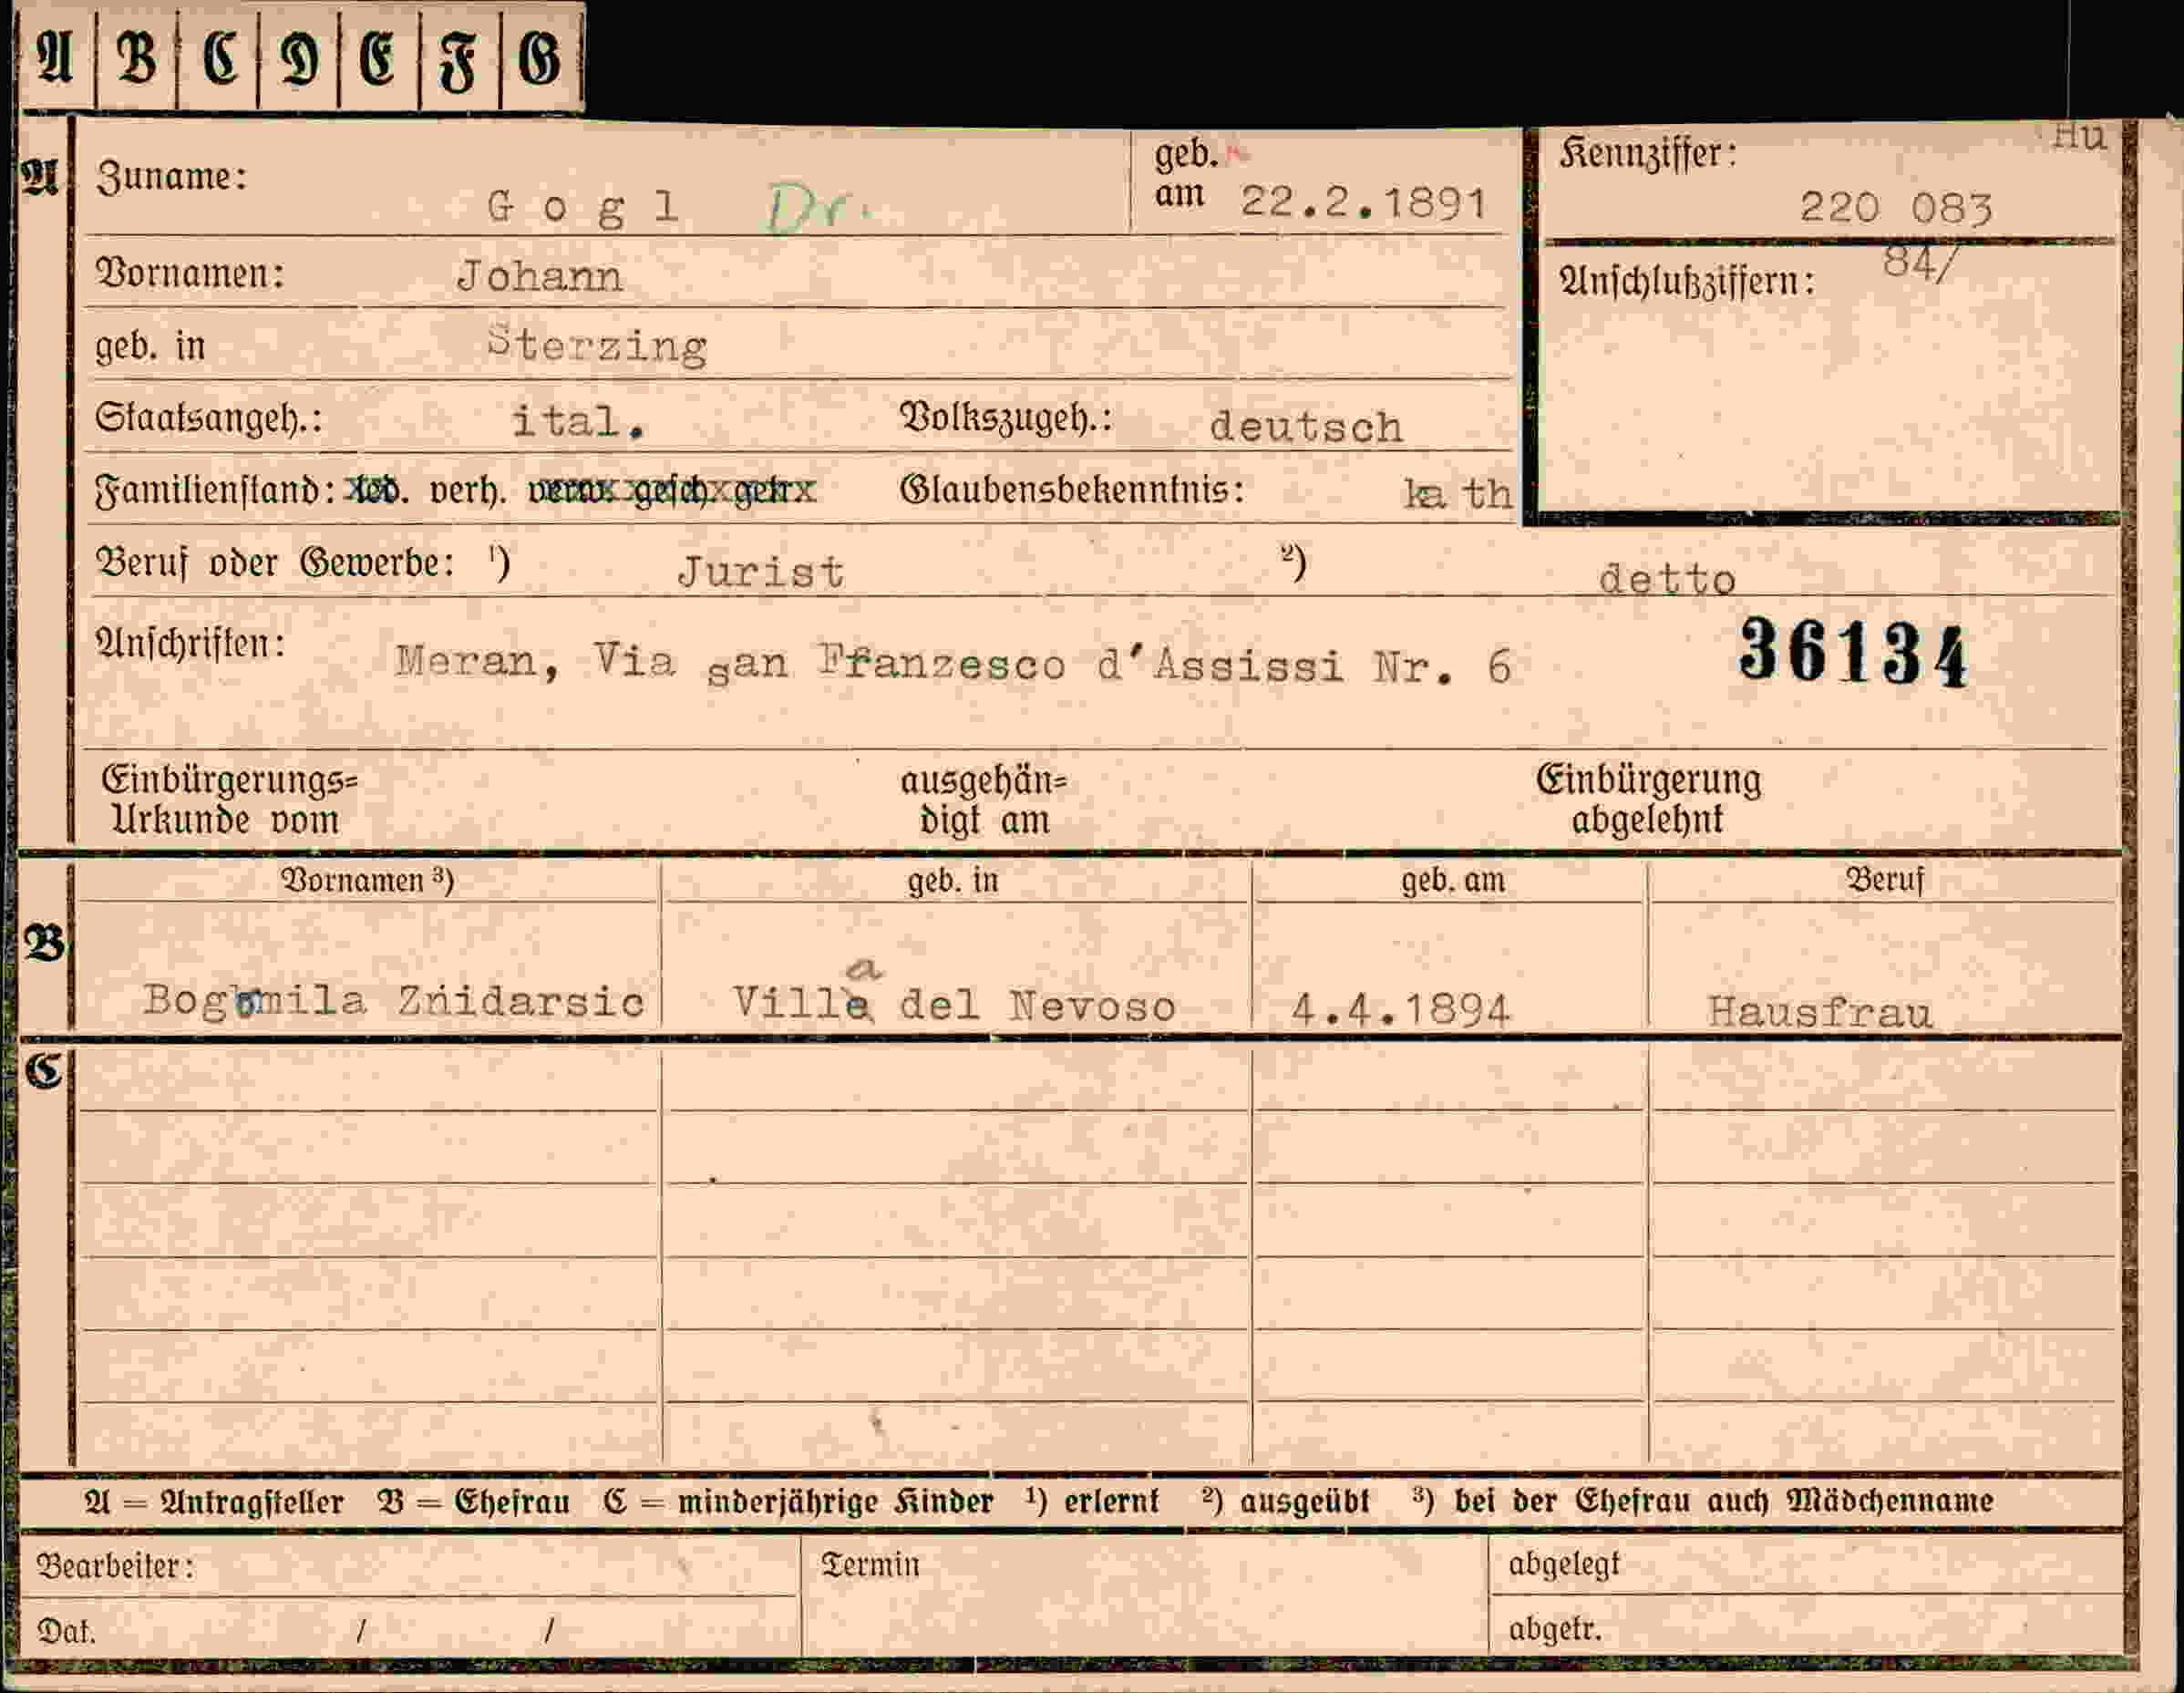 A B C D E F G
A Zuname: Gogl Dr. geb. am 22.2.1891
Kennziffer: Hu
220 083
Anschlußziffern: 84/
Vornamen: Johann
geb. in Sterzing
Staatsangeh.: ital. Volkszugeh.: deutsch
Familienstand: led. verh. verw. gesch. getr. Glaubensbekenntnis: kath
Beruf oder Gewerbe: ¹) Jurist ²) detto
Anschriften: Meran, Via san Ffanzesco d'Assissi Nr. 6 36134
Einbürgerungs= Urkunde vom ausgehän= digt am Einbürgerung abgelehnt
Vornamen ³) geb. in geb. am Beruf
B Bogomila Znidarsic Villa del Nevoso 4.4.1894 Hausfrau
C
A = Antragsteller B = Ehefrau C = minderjährige Kinder ¹) erlernt ²) ausgeübt ³) bei der Ehefrau auch Mädchenname
Bearbeiter: Termin abgelegt
Dat. / / abgetr.